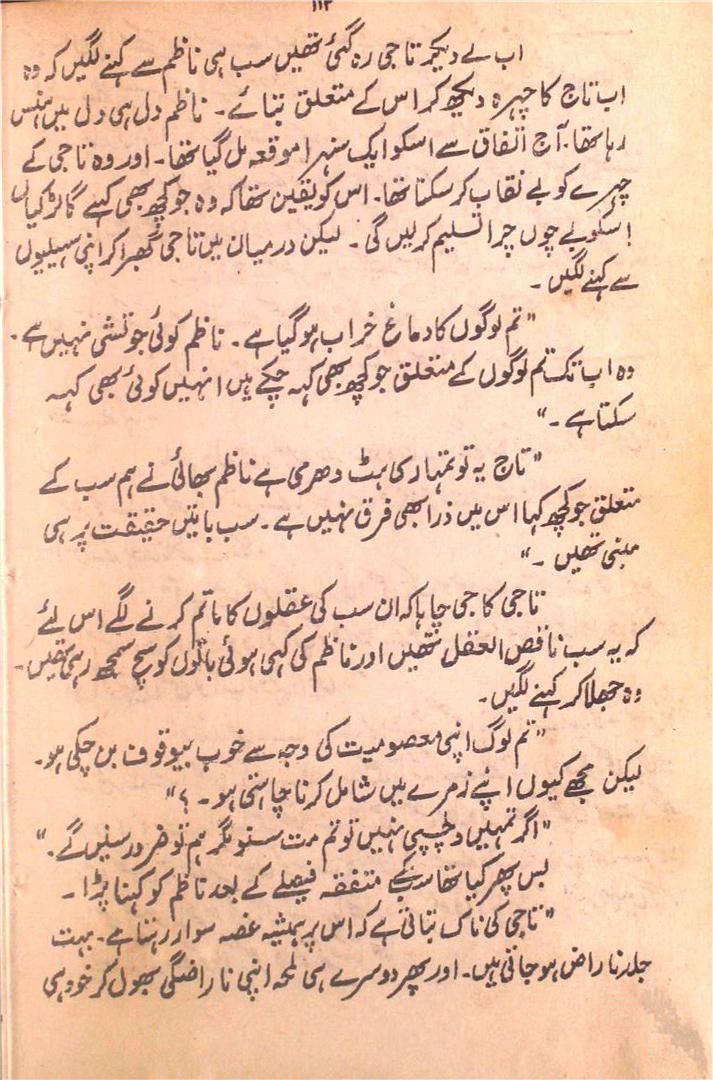 ۱۱۳
اب لے دیکر تاجی رہ گئی تھیں سب ہی ناظم سے کہنے لگیں کہ وہ
اب تاج کا چہرہ دیکھ کر اس کے متعلق بتائے۔ ناظم دل ہی دل میں ہنس
رہا تھا۔ آج اتفاق سے اسکو ایک سنہرا موقعہ مل گیا تھا۔ اور وہ تاجی کے
چہرے کو بے نقاب کر سکتا تھا۔ اس کو یقین تھا کہ وہ جو کچھ بھی کہے گا لڑکیاں
اسکو بے چوں چرا تسلیم کرلیں گی۔ لیکن درمیان میں تاجی گھبرا کر اپنی سہیلیوں
سے کہنے لگیں۔
"تم لوگوں کا دماغ خراب ہو گیا ہے۔ ناظم کوئی جوتشی نہیں ہے۔
وہ اب تک تم لوگوں کے متعلق جو کچھ بھی کہہ چکے ہیں انہیں کوئی بھی کہہ
سکتا ہے۔"
"تاج یہ تو تمہاری ہٹ دھرمی ہے ناظم بھائی نے ہم سب کے
متعلق جو کچھ کہا اس میں ذرا بھی فرق نہیں ہے۔ سب باتیں حقیقت پر ہی
مبنی تھیں۔"
تاجی کا جی چاہا کہ ان سب کی عقلوں کا ماتم کرنے لگے اس لئے
کہ یہ سب ناقص العقل تھیں اور ناظم کی کہی ہوئی باتوں کو سچ سمجھ رہی تھیں۔
وہ جھلا کر کہنے لگیں۔
"تم لوگ اپنی معصومیت کی وجہ سے خوب بیوقوف بن چکی ہو۔
لیکن مجھے کیوں اپنے زمرے میں شامل کرنا چاہتی ہو۔ ؟"
"اگر تمہیں دلچسپی نہیں تو تم مت سنو مگر ہم تو ضرور سنیں گے۔"
بس پھر کیا تھا سب کے متفقہ فیصلے کے بعد ناظم کو کہنا پڑا۔
"تاجی کی ناک بتاتی ہے کہ اس پر ہمیشہ غصہ سوار رہتا ہے۔ بہت
جلد ناراض ہو جاتی ہیں۔ اور پھر دوسرے ہی لمحہ اپنی ناراضگی بھول کر خود ہی